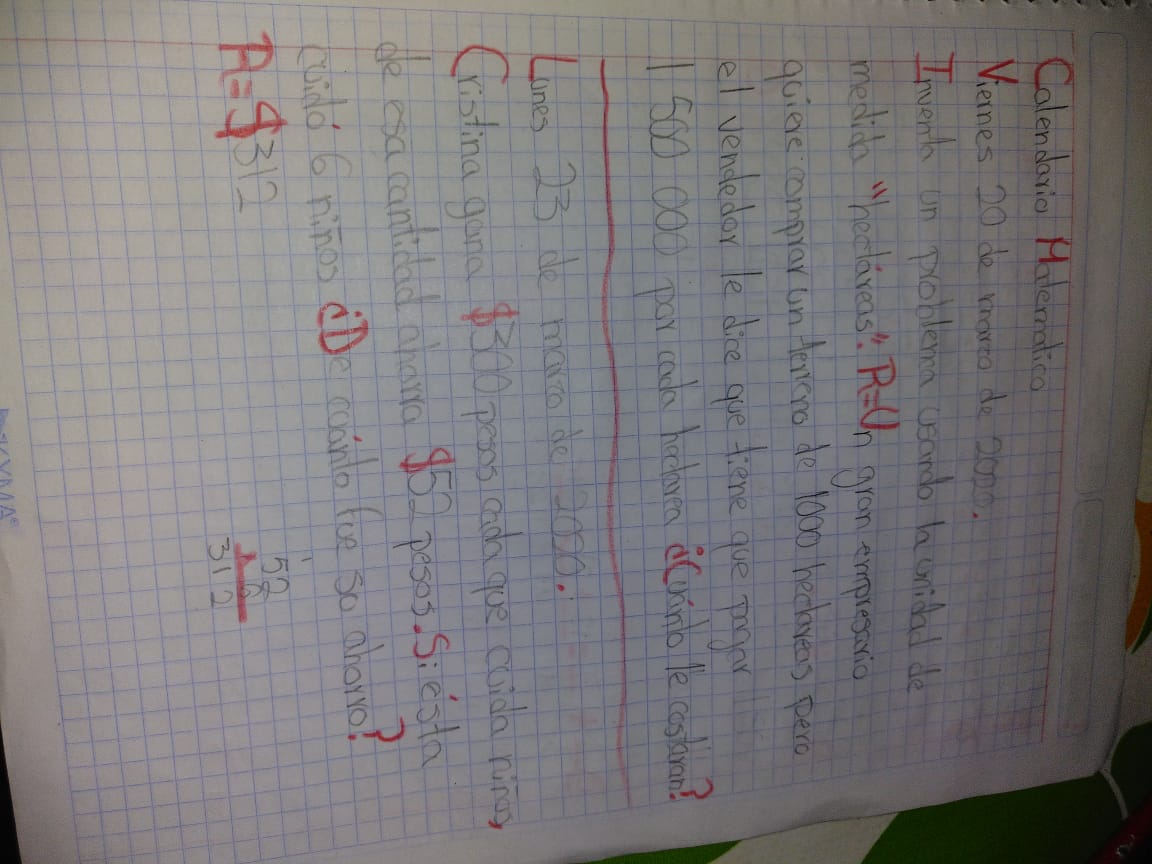 Calendario Matematico
Viernes 20 de marzo de 2020.
Inventa un problema usando la unidad de
medida "hectáreas". R=Un gran empresario
quiere comprar un terreno de 1000 hectareas pero
el vendedor le dice que tiene que pagar
1 500 000 por cada hectarea ¿Cuánto le costaran?
Lunes 23 de marzo de 2020.
Cristina gana $300 pesos cada que cuida niños,
de esa cantidad ahorra $52 pesos. Si ésta
cuidó 6 niños ¿De cuánto fue so ahorro?
R=$312
1
52
x 6
312